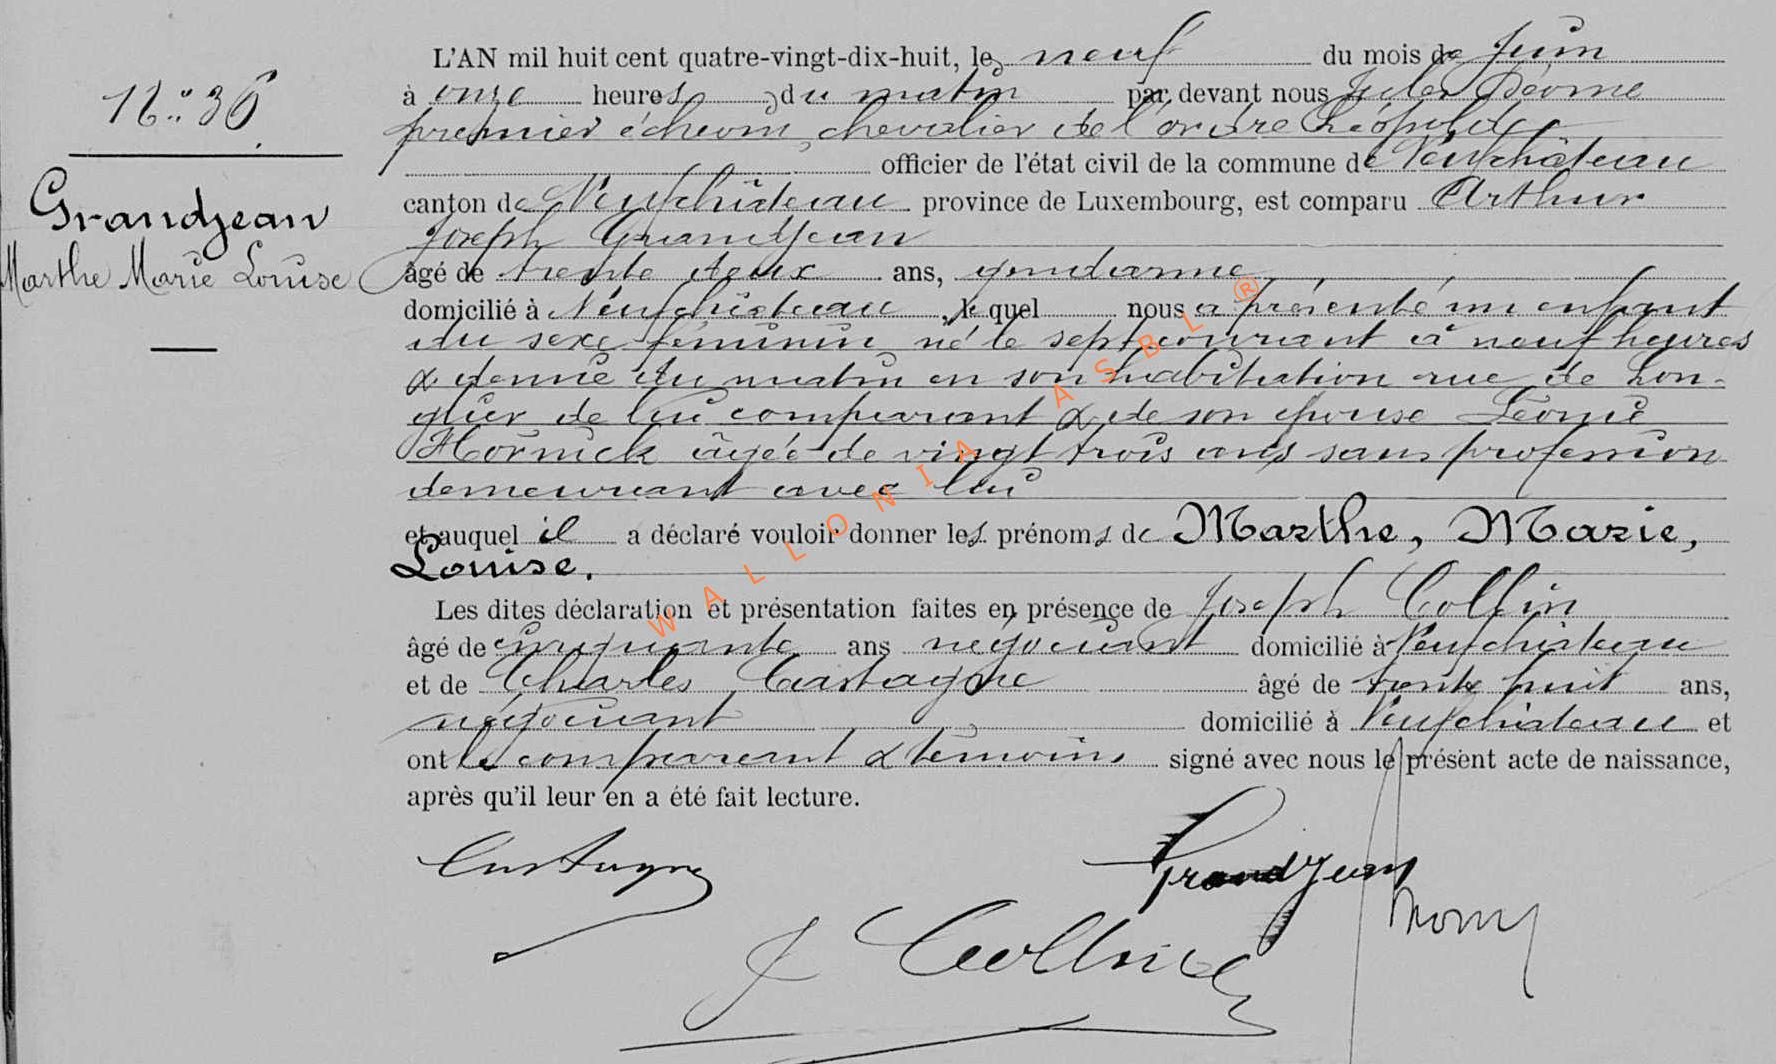 N° 36
Grandjean
Marthe Marie Louise
L'AN mil huit cent quatre-vingt-dix-huit, le neuf du mois de Juin
à onze heures du matin par devant nous Jules
premier échevin, chevalier de l'ordre Léopold
officier de l'état civil de la commune de Neufchâteau
canton de Neufchâteau province de Luxembourg, est comparu Arthur
Joseph Grandjean
âgé de trente deux ans, gendarme
domicilié à Neufchâteau, lequel nous a présenté un enfant
du sexe féminin né le sept courant à neuf heures
& demie du matin en son habitation rue de Lon-
glier de lui comparant & de son épouse Léonie
Hornick âgée de vingt trois ans sans profession
demeurant avec lui
et auquel il a déclaré vouloir donner les prénoms de Marthe, Marie,
Louise.
Les dites déclaration et présentation faites en présence de Joseph Collin
âgé de cinquante ans négociant domicilié à Neufchâteau
et de Charles Castagne âgé de trente huit ans,
négociant domicilié à Neufchâteau et
ont le comparant & témoins signé avec nous le présent acte de naissance,
après qu'il leur en a été fait lecture.
Castagne
Grandjean
J Collin
WALLONIA ASBL ®